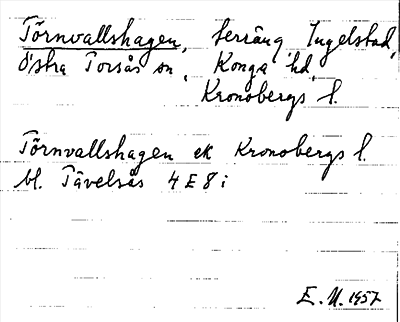 Törnvallshagen, terräng Ingelstad,
Östra Torsås sn, Konga hd,
Kronobergs l.
Törnvallshagen ek Kronobergs l.
bl. Tävelsås 4 E 8 i
E. U. 1957